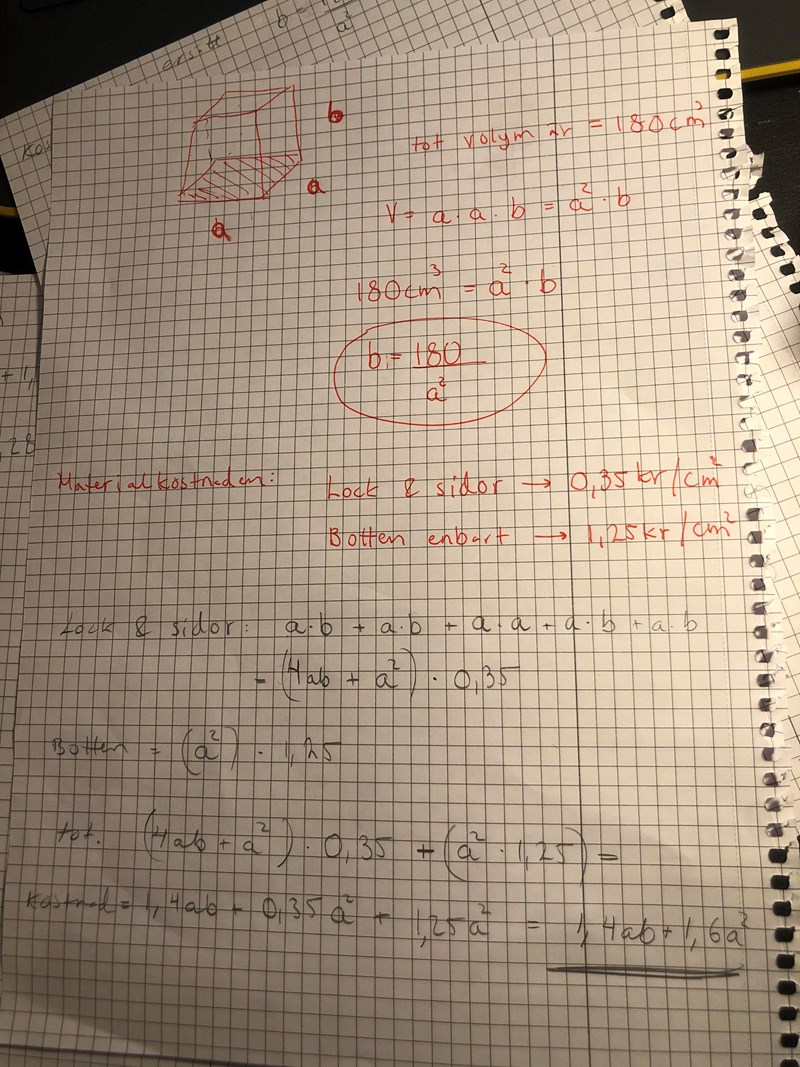 b =
a²
ersätt
Ko
b
a
a
tot volym är = 180cm³
V = a · a · b = a² · b
180cm³ = a² · b
b = 180
a²
+ 1,
,28
Materialkostnaden: Lock & sidor → 0,35 kr/cm²
Botten enbart → 1,25 kr/cm²
Lock & sidor: a·b + a·b + a·a + a·b + a·b
= (4ab + a²) · 0,35
Botten = (a²) · 1,25
tot. (4ab + a²) · 0,35 + (a² · 1,25) =
Kostnad = 1,4ab + 0,35a² + 1,25a² = 1,4ab + 1,6a²